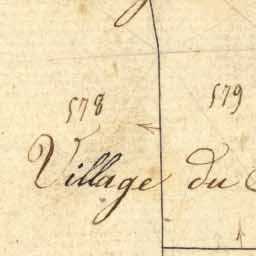 578
579
Village du